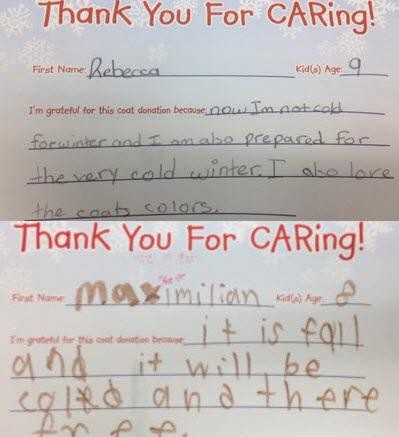 Thank You For CARing!
First Name: Rebecca Kid(s) Age: 9
I'm grateful for this coat donation because: now Im not cold
for winter and I am also prepared for
the very cold winter. I also love
the coats colors.
Thank You For CARing!
First Name: Maximilian Kid(s) Age: 8
I'm grateful for this coat donation because: it is fall
and it will be
and there
free.